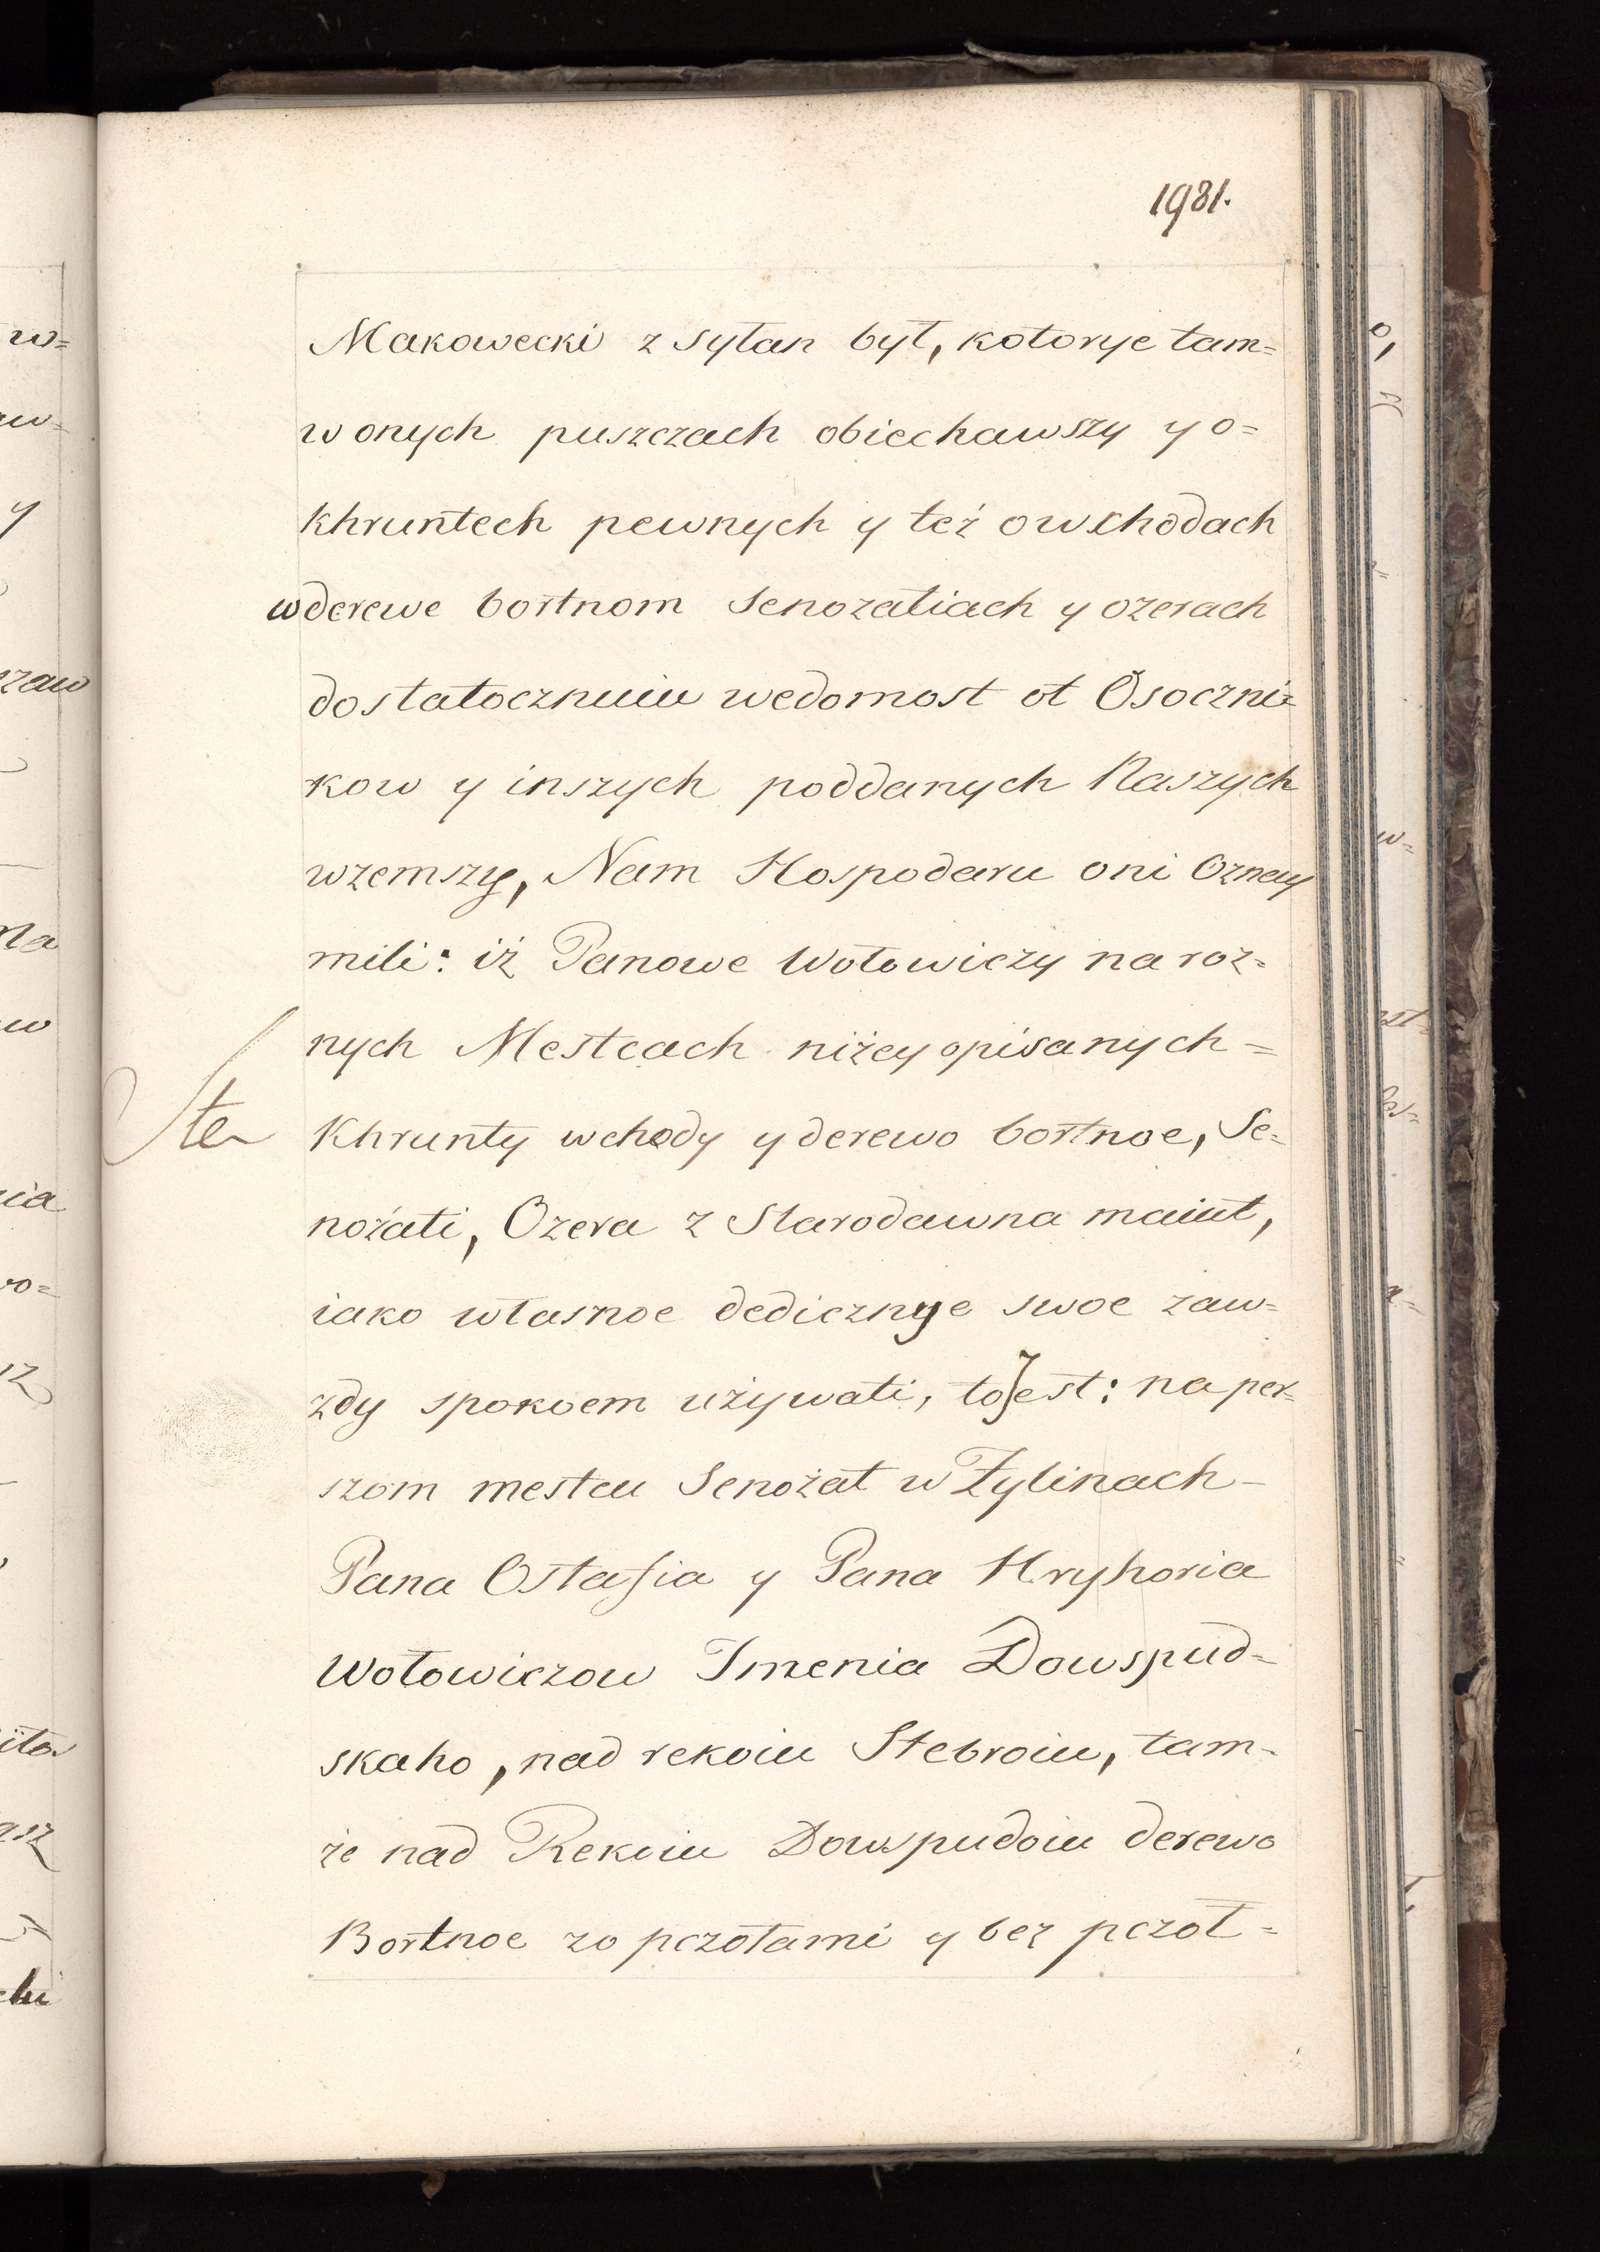 1981.
Makowecki z syłan był, kotorye tam=
w onych puszczach obiechawszy y o=
khruntech pewnych y też o wchodach
w derewe bortnom Senozatiach y ozerach
dostatocznuiu wedomost ot Osoczni=
kow y inszych poddanych Naszych
wzemszy, Nam Hospodaru oni Oznay
mili: iż Panowe Wołowiczy na roz=
nych Mestcach niżey opisanych=
Khrunty wchody y derewo bortnoe, Se=
nożati, Ozera z Starodawna maiut,
iako własnoe dedicznye swoe zaw=
zdy spokoem używati, to Jest: na per=
szom mestcu Senożat w Żylinach-
Pana Ostafia y Pana Hryhoria
Wołowiczow Imenia Dowspud=
skaho, nad rekoiu Stebroiu, tam=
że nad Rekoiu Dowspudoiu derewo
Bortnoe zo pczołami y bez pczoł=